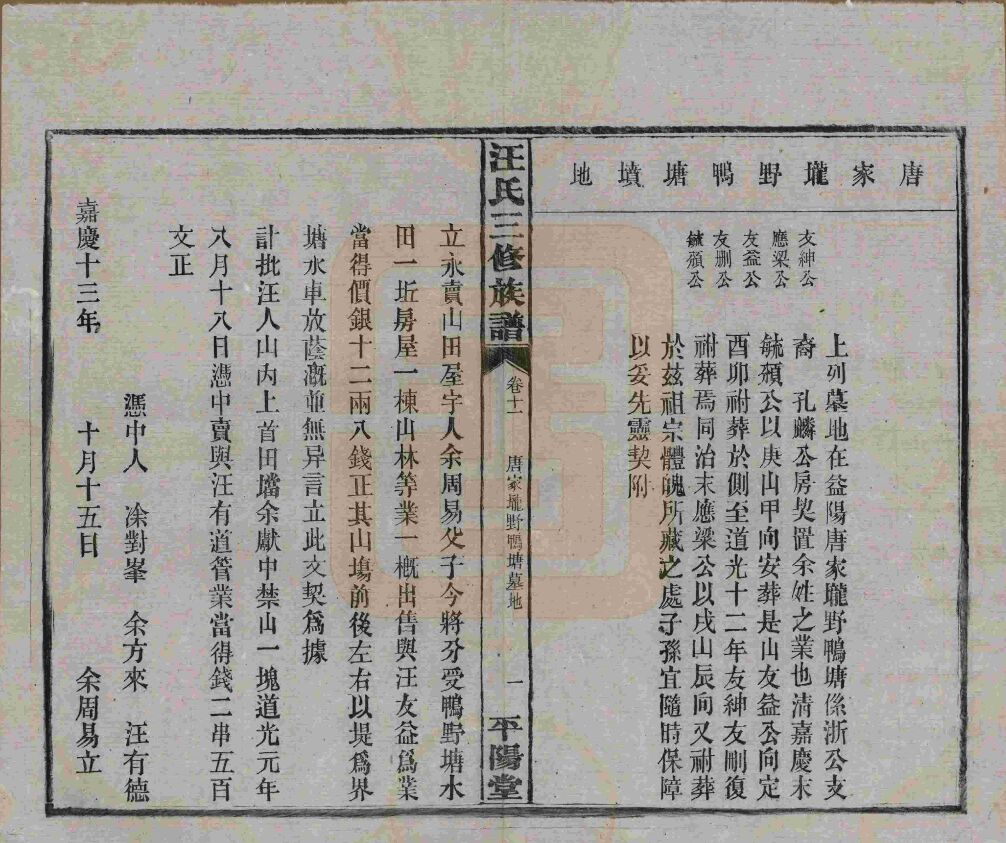 唐家壠野鴨塘墳地
友紳公
應梁公
友益公
友刪公
毓頫公
上列墓地在益陽唐家壠野鴨塘係浙公支
裔　孔麟公房契置余姓之業也清嘉慶末
毓頫公以庚山甲向安葬是山友益公向定
酉卯祔葬於側至道光十二年友紳友剛復
祔葬焉同治末應梁公以戌山辰向又祔葬
於兹祖宗體魄所藏之處子孫宜隨時保障
以妥先靈契附
汪氏三修族譜
卷十一
唐家壠野鴨塘墓地
一
平陽堂
立永賣山田屋宇人余周易父子今將分受鴨野塘水
田一坵房屋一棟山林等業一概出售與汪友益爲業
當得價銀十二兩八錢正其山塲前後左右以堤爲界
塘水車放蔭溉並無异言立此文契爲據
計批汪人山內上首田壋余獻中禁山一塊道光元年
八月十八日憑中賣與汪有道管業當得錢二串五百
文正
憑中人　凃對峯　余方來　汪有德
嘉慶十三年　十月十五日　余周易立